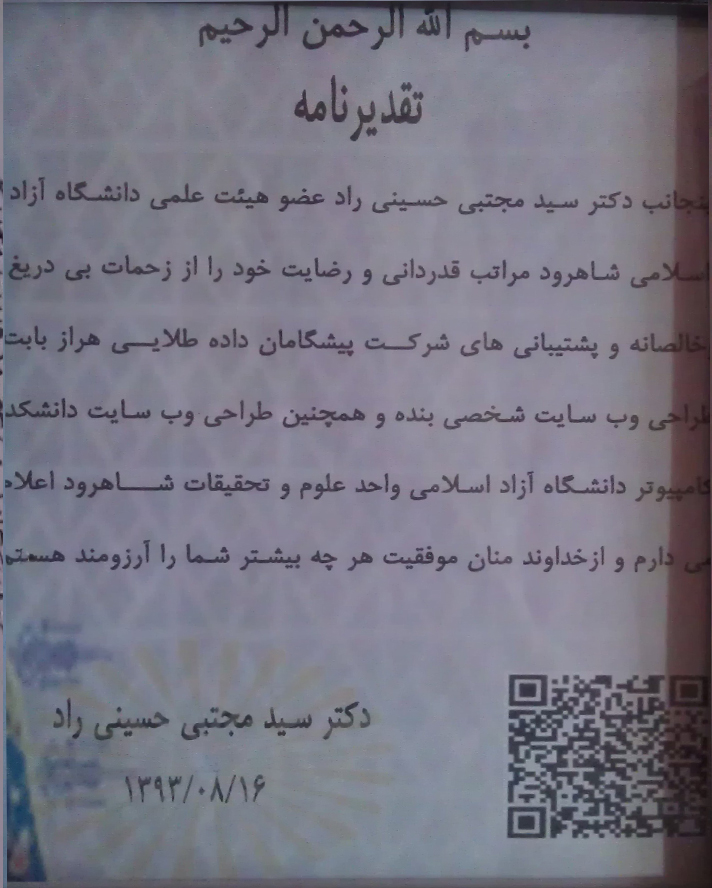 بسم الله الرحمن الرحیم
تقدیرنامه
ینجانب دکتر سید مجتبی حسینی راد عضو هیئت علمی دانشگاه آزاد
اسلامی شاهرود مراتب قدردانی و رضایت خود را از زحمات بی دریغ
خالصانه و پشتیبانی های شرکت پیشگامان داده طلایی هراز بابت
طراحی وب سایت شخصی بنده و همچنین طراحی وب سایت دانشکد
کامپیوتر دانشگاه آزاد اسلامی واحد علوم و تحقیقات شاهرود اعلام
می دارم و ازخداوند منان موفقیت هر چه بیشتر شما را آرزومند هستم
دکتر سید مجتبی حسینی راد
۱۳۹۳/۰۸/۱۶